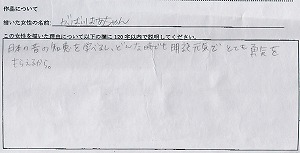 作品について
描いた女性の名前: がばいばあちゃん
この女性を描いた理由について以下の欄に120字以内で説明してください。
日本の昔の知恵を学べるし、どんな時でも明るく元気でとても勇気を
もらえるから。